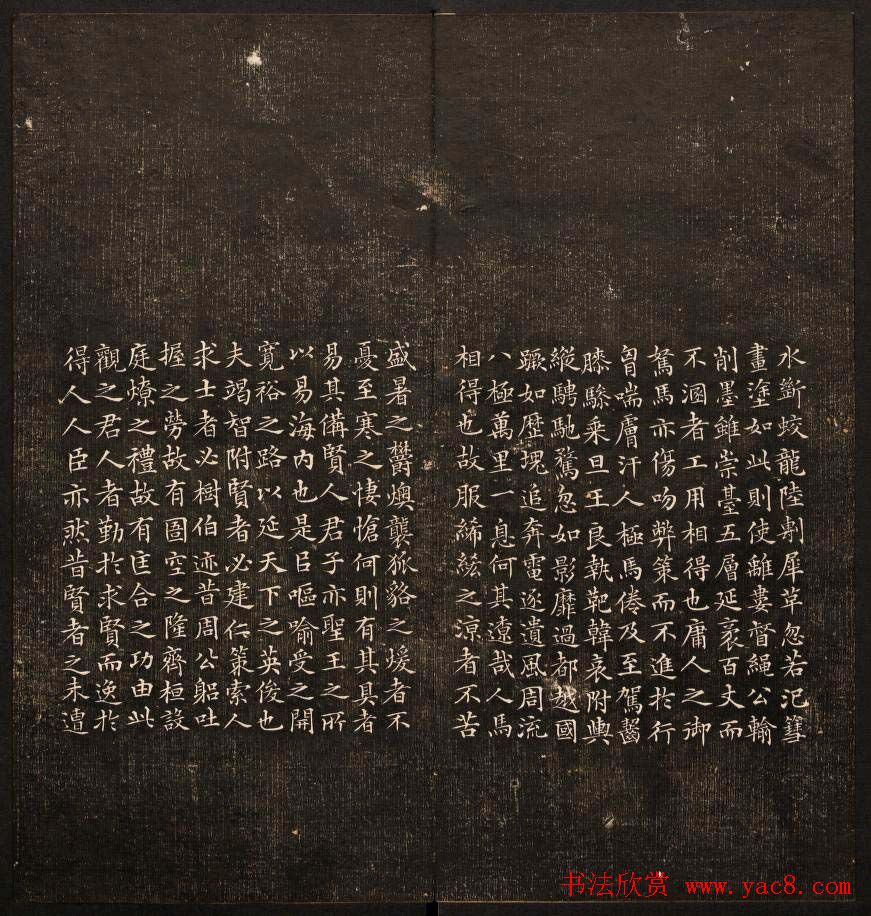 水斷蛟龍陸剸犀革忽若汜篲
畫塗如此則使離婁督繩公輸
削墨雖崇臺五層延袤百丈而
不溷者工用相得也庸人之御
駑馬亦傷吻弊策而不進於行
胷喘膚汗人極馬倦及至駕齧
膝驂乘旦王良執靶韓哀附輿
縱騁馳騖忽如影靡過都越國
蹶如歷塊追奔電逐遺風周流
八極萬里一息何其遼哉人馬
相得也故服絺綌之涼者不苦
盛暑之鬱燠襲狐貉之煖者不
憂至寒之悽愴何則有其具者
易其備賢人君子亦聖王之所
以易海內也是臣嘔喻受之開
寬裕之路以延天下之英俊也
夫竭智附賢者必建仁策索人
求士者必樹伯迹昔周公躳吐
握之勞故有圄空之隆齊桓設
庭燎之禮故有匡合之功由此
觀之君人者勤於求賢而逸於
得人人臣亦然昔賢者之未遭
书法欣赏 www.yac8.com